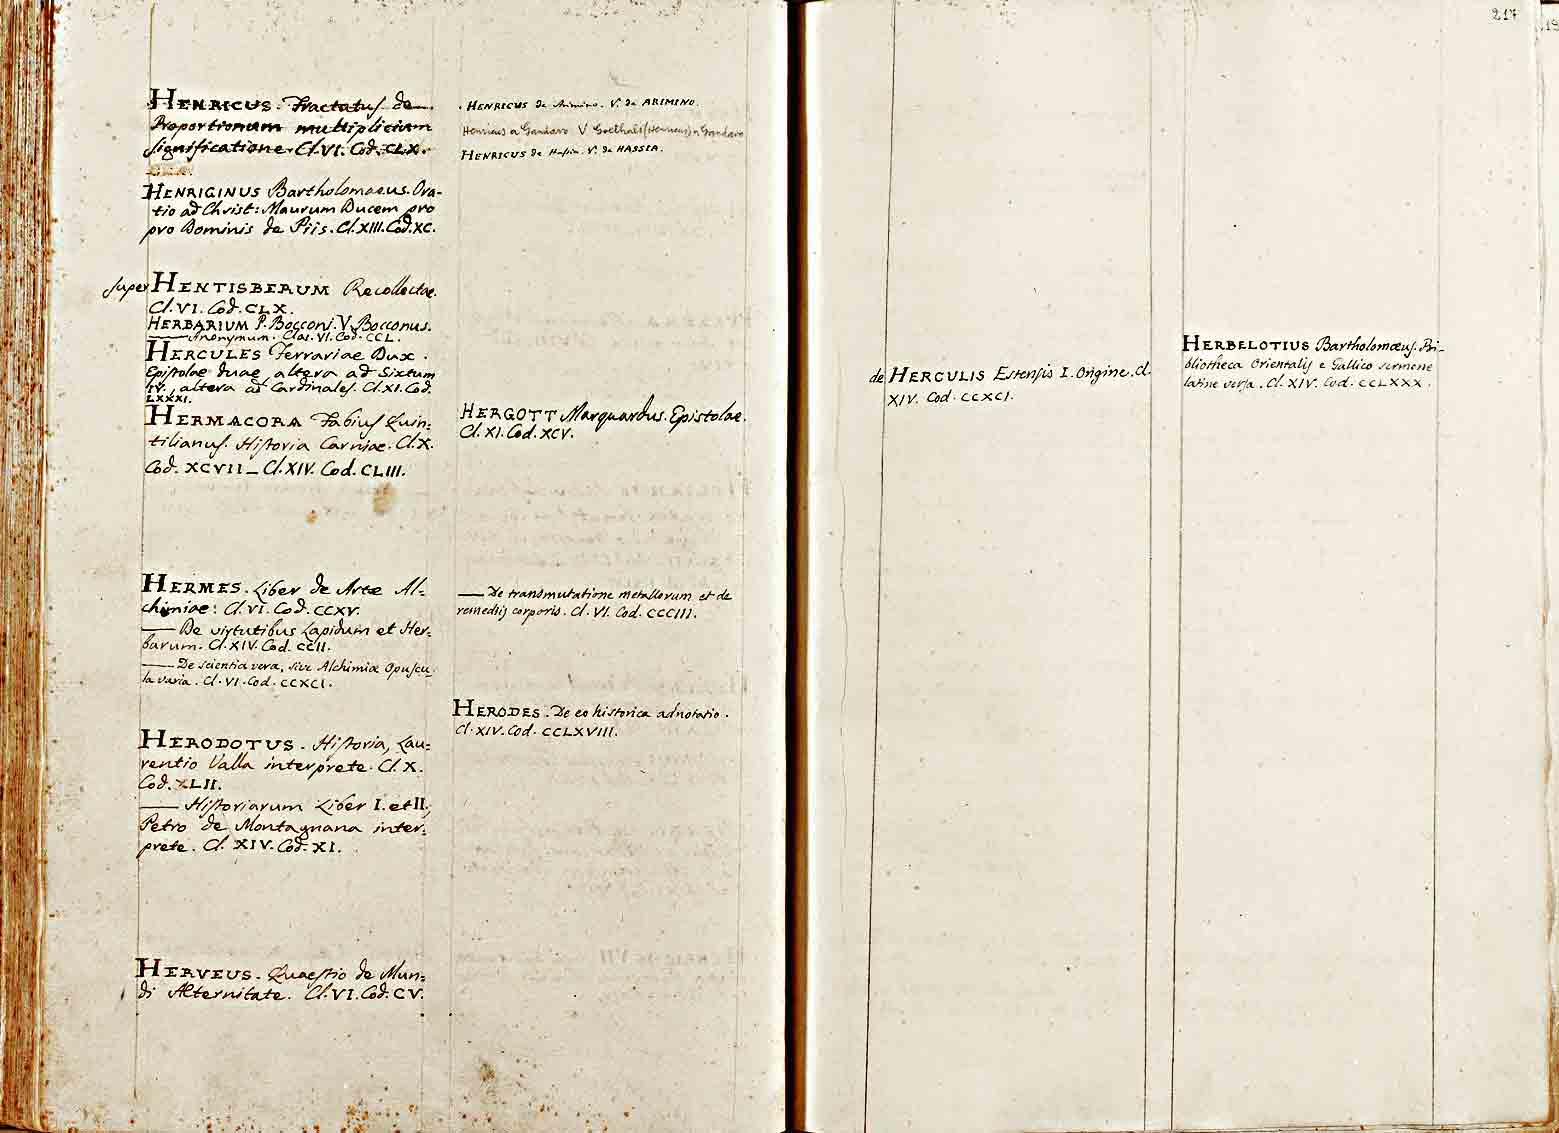 HENRICUS. Tractatus de
Proportionum multiplicium
significatione. Cl. VI. Cod. CLX.
HENRIGINUS Bartholomaeus. Ora-
tio ad Christ: Maurum Ducem pro
pro Dominis de Piis. Cl. XIII. Cod. XC.
super HENTISBERUM Recollectae.
Cl. VI. Cod. CLX.
HERBARIUM P. Bocconi. V. Bocconus.
—— Anonymum. Clas. VI. Cod. CCL.
HERCULES Ferrariae Dux.
Epistolae duae, altera ad Sixtum
IV., altera ad Cardinales. Cl. XI. Cod.
LXXXI.
HERMACORA Fabius Quin:
tilianus. Historia Carniae. Cl. X.
Cod. XCVII — Cl. XIV. Cod. CLIII.
HERMES. Liber de Arte Al:
chimiae: Cl. VI. Cod. CCXV.
—— De virtutibus Lapidum et Her:
barum. Cl. XIV. Cod. CCII.
—— De scientia vera, sive Alchimiae Opuscu:
la varia. Cl. VI. Cod. CCXCI.
HERODOTUS. Historia, Lau:
rentio Valla interprete. Cl. X.
Cod. XLII.
—— Historiarum Liber I. et II.,
Petro de Montagnana inter:
prete. Cl. XIV. Cod. XI.
HERVEUS. Quaestio de Mun:
di Aeternitate. Cl. VI. Cod. CV.
HENRICUS de Arimino. V. de ARIMINO.
Henricus a Gandavo V Goethals (Henricus) a Gandavo
HENRICUS de Hassia. V. de HASSIA.
HERGOTT Marquardus. Epistolae.
Cl. XI. Cod. XCV.
—— De transmutatione metallorum et de
remediis corporis. Cl. VI. Cod. CCCIII.
HERODES. De eo historica adnotatio.
Cl. XIV. Cod. CCLXVIII.
217
de HERCULIS Estensis I. Origine. Cl.
XIV. Cod. CCXCI.
HERBELOTIUS Bartholomaeus. Bi-
bliotheca Orientalis e Gallico sermone
latine versa. Cl. XIV. Cod. CCLXXX.